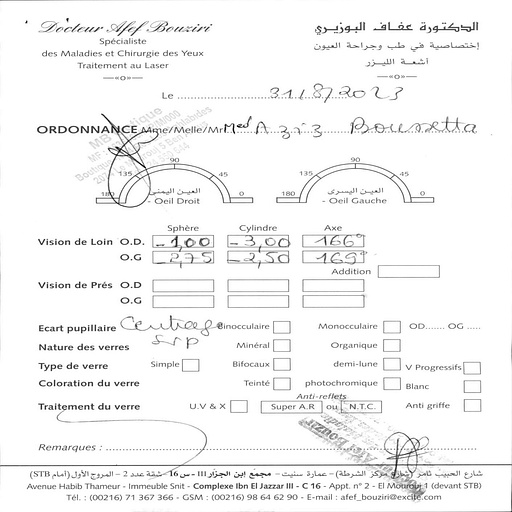 Docteur Afef Bouziri
Spécialiste
des Maladies et Chirurgie des Yeux
Traitement au Laser
—«o»—
الدكتورة عفاف البوزيري
إختصاصية في طب وجراحة العيون
أشعة الليزر
—«o»—
Le 31/8/2023
ORDONNANCE Mme/Melle/Mr Med Aziz Boussetta
180 135 90 45 0
العين اليمنى
- Oeil Droit
180 135 90 45 0
العين اليسرى
- Oeil Gauche
Sphère Cylindre Axe
Vision de Loin O.D. -1,00 -3,00 166°
O.G -2,75 -2,50 169°
Addition
Vision de Prés O.D
O.G
Ecart pupillaire Centrage Binocculaire Monocculaire OD....... OG .....
svp
Nature des verres Minéral Organique
Type de verre Simple Bifocaux demi-lune V Progressifs
Coloration du verre Teinté photochromique Blanc
Anti-reflets
Traitement du verre U.V & X Super A.R ou N.T.C. Anti griffe
Remarques :
شارع الحبيب ثامر (شارع مركز الشرطة) – عمارة سنيت – مجمع ابن الجزار III - س 16 - شقة عدد 2 – المروج الأول (أمام STB)
Avenue Habib Thameur - Immeuble Snit - Complexe Ibn El Jazzar III - C 16 - Appt. n° 2 - El Mourouj 1 (devant STB)
Tél. : (00216) 71 367 366 - GSM : (00216) 98 64 62 90 - E-mail : afef_bouziri@excite.com